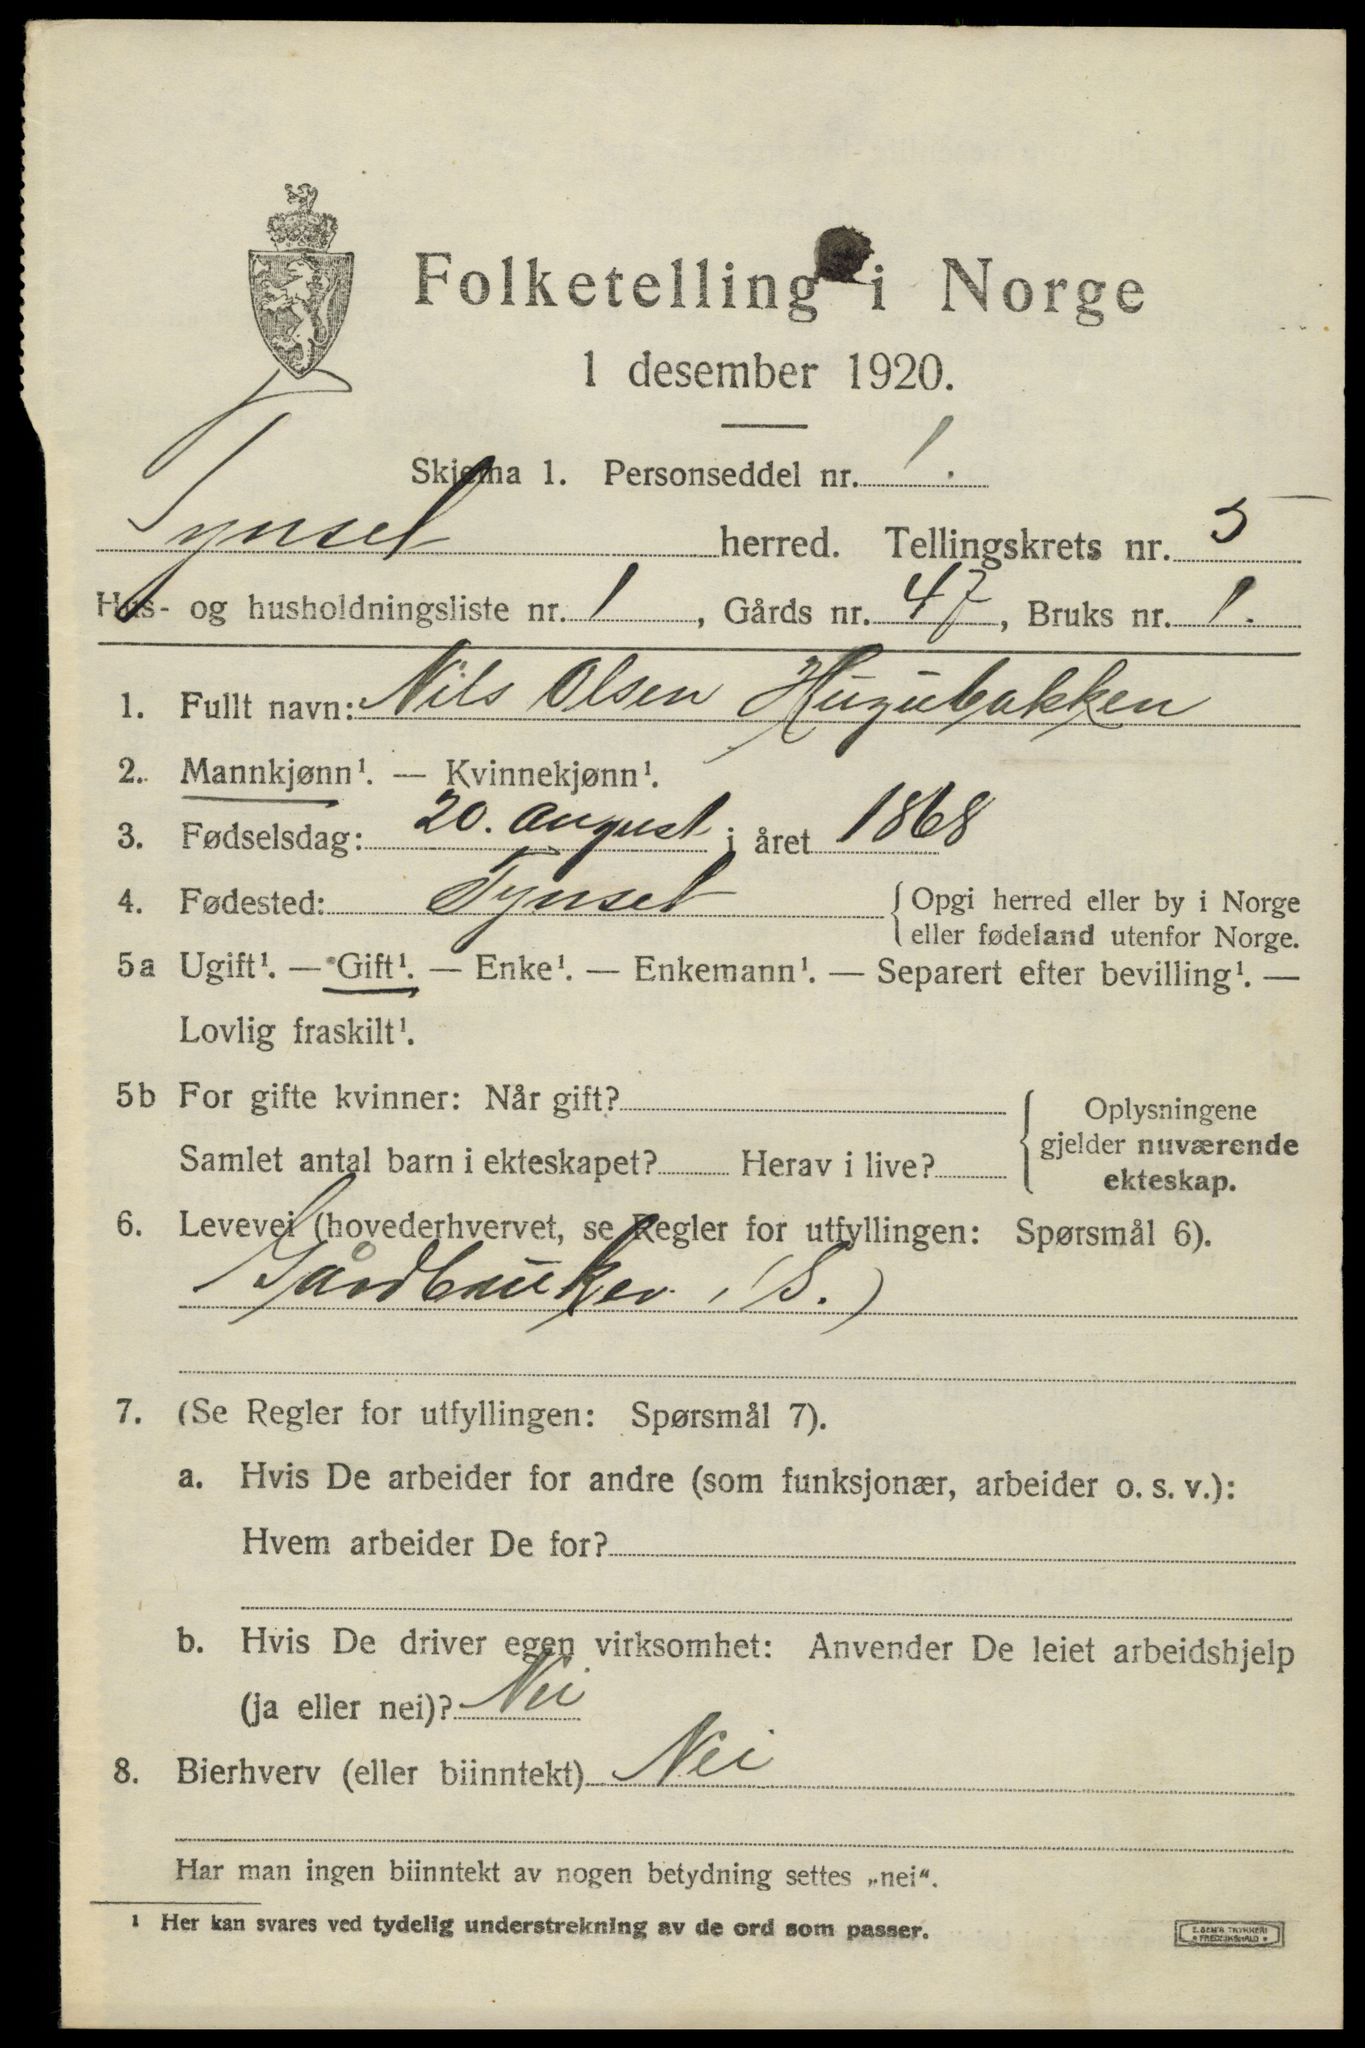 Folketelling i Norge
1 desember 1920.
Skjema 1. Personseddel nr. 1.
Tynset herred. Tellingskrets nr. 5
Hus- og husholdningsliste nr. 1, Gårds nr. 47, Bruks nr. 1.
1. Fullt navn: Nils Olsen Hugubakken
2. Mannkjønn¹. — Kvinnekjønn¹.
3. Fødselsdag: 20. august i året 1868
4. Fødested: Tynset { Opgi herred eller by i Norge
eller fødeland utenfor Norge.
5a Ugift¹. — Gift¹. — Enke¹. — Enkemann¹. — Separert efter bevilling¹. —
Lovlig fraskilt¹.
5b For gifte kvinner: Når gift? { Oplysningene
gjelder nuværende
Samlet antal barn i ekteskapet? Herav i live?
ekteskap.
6. Levevei (hovederhvervet, se Regler for utfyllingen: Spørsmål 6).
Gårdbruker. (S.)
7. (Se Regler for utfyllingen: Spørsmål 7).
a. Hvis De arbeider for andre (som funksjonær, arbeider o. s. v.):
Hvem arbeider De for?
b. Hvis De driver egen virksomhet: Anvender De leiet arbeidshjelp
(ja eller nei)? Nei
8. Bierhverv (eller biinntekt) Nei
Har man ingen biinntekt av nogen betydning settes „nei“.
¹ Her kan svares ved tydelig understrekning av de ord som passer.